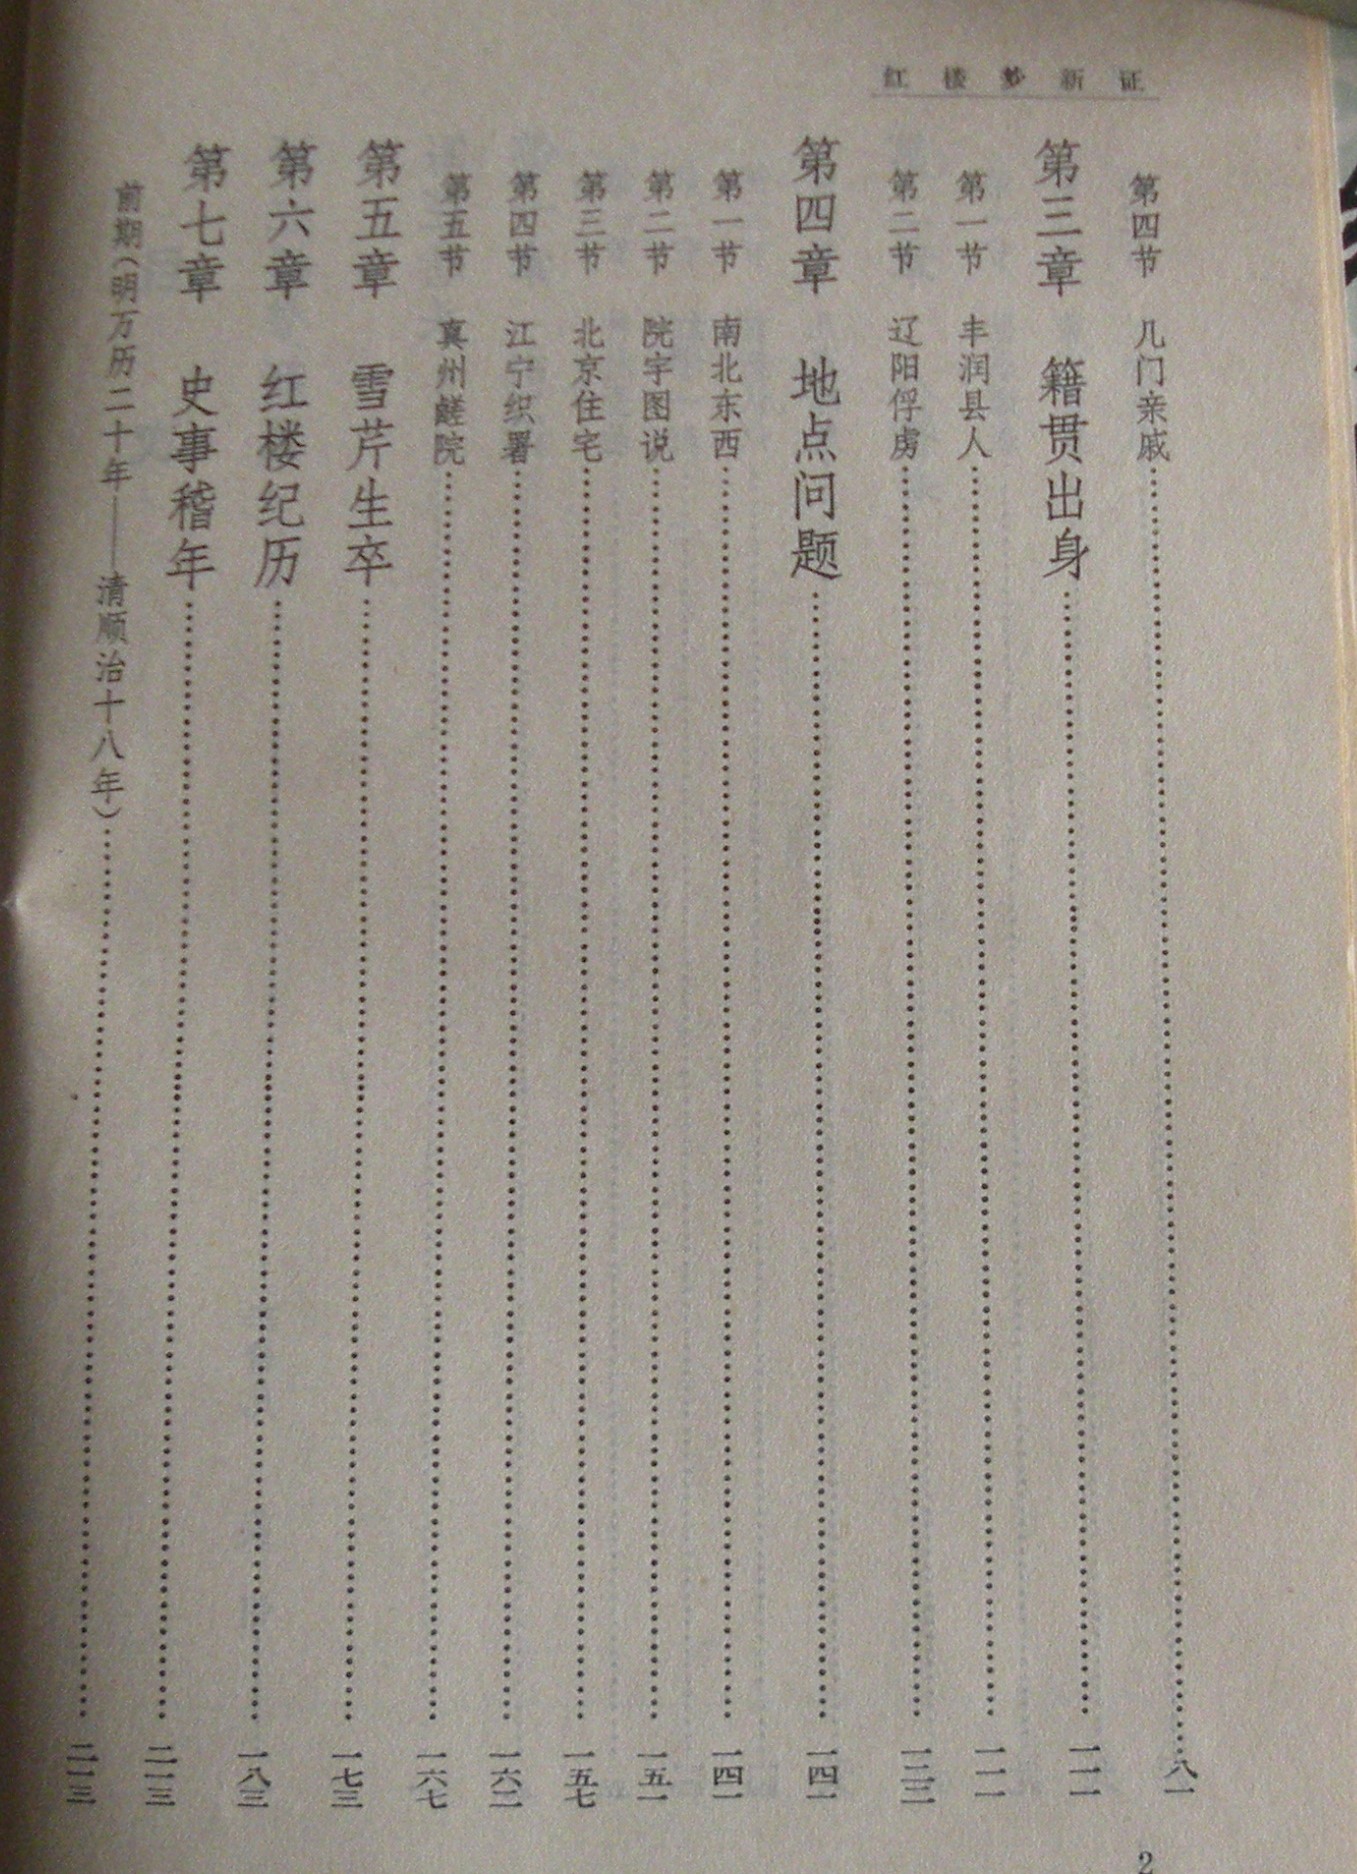 红楼梦新证
第四节 几门亲戚……八一
第三章 籍贯出身……一一一
第一节 丰润县人……一一一
第二节 辽阳俘虏……一二二
第四章 地点问题……一四一
第一节 南北东西……一四一
第二节 院宇图说……一五一
第三节 北京住宅……一五七
第四节 江宁织署……一六二
第五节 真州鹾院……一六七
第五章 雪芹生卒……一七三
第六章 红楼纪历……一八三
第七章 史事稽年……二一三
前期(明万历二十年——清顺治十八年)……二一三
2